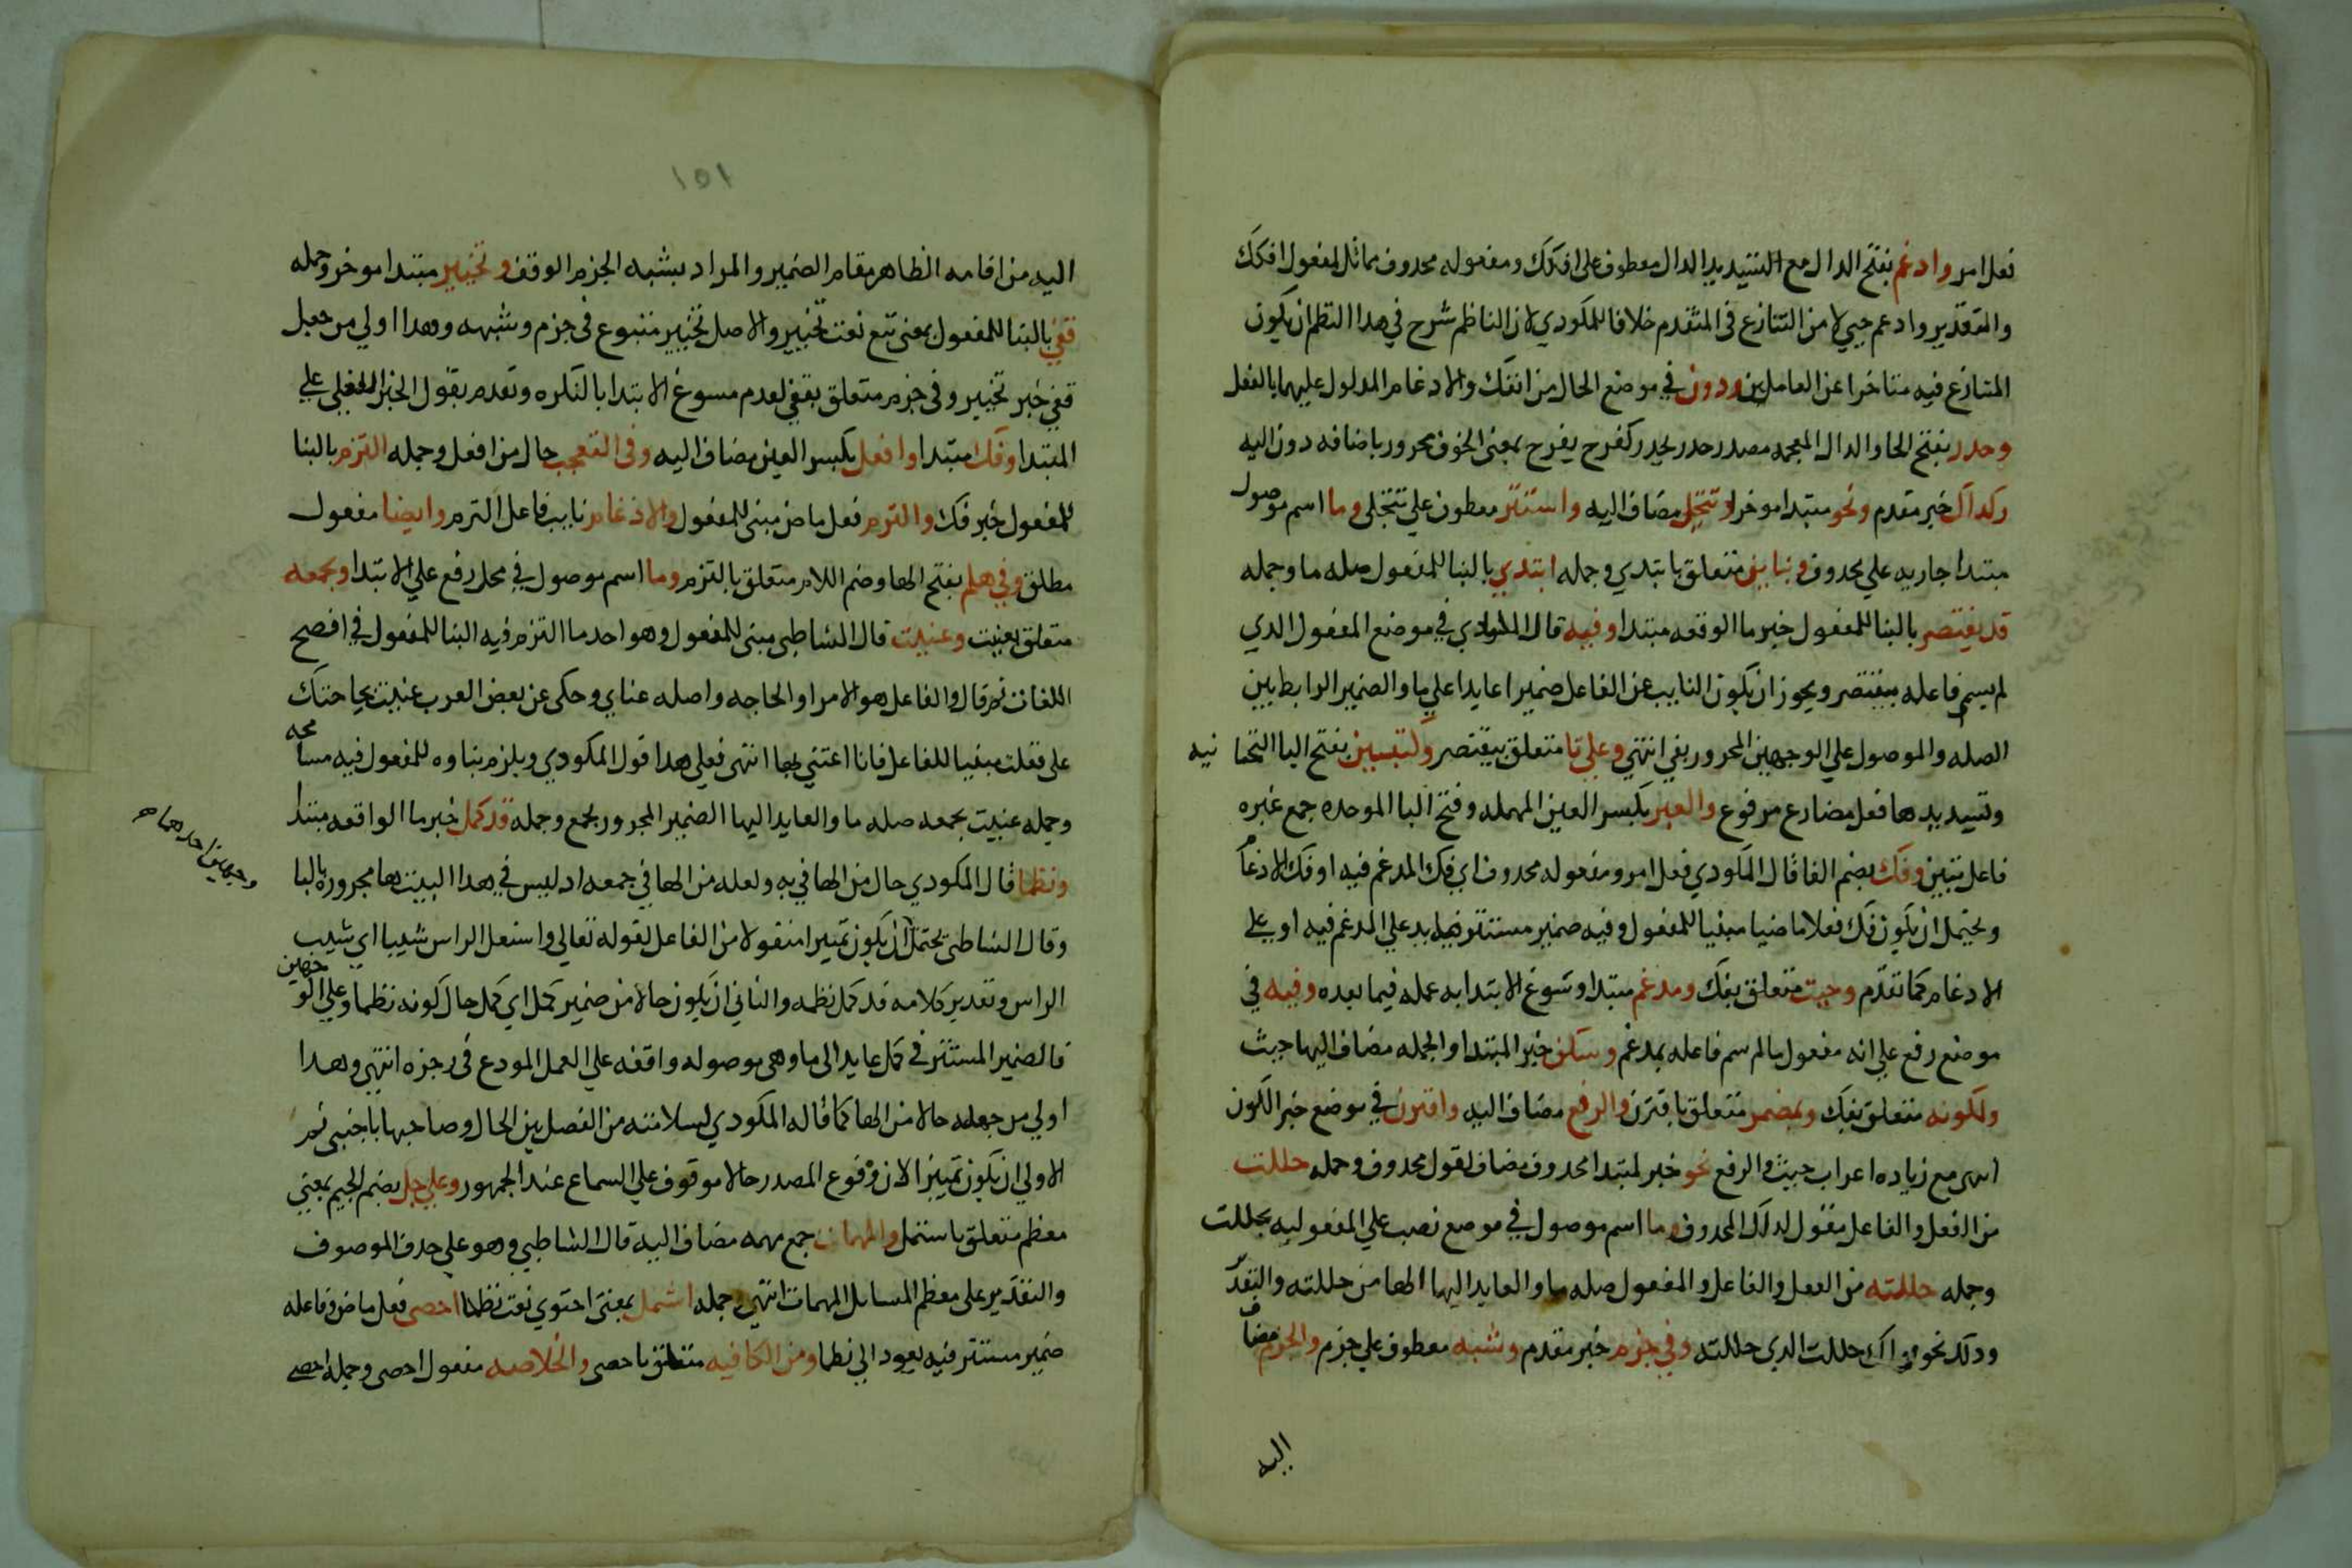 فعل امر وادغم بفتح الدال مع التشديد الدال معطوف على افكك ومفعوله محدوف مماثل لمفعول افكك
والتقدير وادعم حيي لا من التنازع في المتقدم خلافا للمكودي لان الناظم شرح في هدا النظم ان يكون
المتنازع فيه متاخرا عن العاملين ودون في موضع الحال من انفك والادغام المدلول عليهما بالفعل
وحدر بفتح الحا والدال المعجمه مصدر حدر يحدر كفرح يفرح بمعنى الخوف مجرور باضافه دون اليه
وكداك خبر مقدم ونحو مبتدا موخر وتتجلى مضاف اليه واستتر معطوف علي تتجلى وما اسم موصول
مبتدا جار به علي محدوف وبتايين متعلق بابتدي وجمله ابتدي بالبنا للمفعول صله ما وجمله
قد يقتصر بالبنا للمفعول خبر ما الوقعه مبتدا وفيه قال المكودي في موضع المفعول الدي
لم يسم فاعله بيقتصر ويجوز ان يكون النايب عن الفاعل ضميرا عايدا علي ما والضمير الرابط بين
الصله والموصول علي الوجهين المجرور بفي انتهي وعلي تا متعلق بيقتصر ولتبيين بفتح اليا التحتا نيه
وتشديدها فعل مضارع مرفوع والعبر بكسر العين المهمله وفتح البا الموحده جمع عبره
فاعل تبين وفك بضم الفا قال المكودي فعل امر ومفعوله محدوف اي فك المدغم فيه او فك الادغام
ويحتمل ان يكون فك فعلا ماضيا مبنيا للمفعول وفيه ضمير مستتر عايد علي المدغم فيه او علي
الادغام كما تقدم وحيث متعلق بفك ومدغم مبتدا وسوغ الابتدا به عمله فيما بعده وفيه في
موضع رفع علي انه مفعول ما لم يسم فاعله بمدغم وسكن خبر المبتدا والجمله مضاف اليها حيث
ولكونه متعلق بفك وبمضمر متعلق باقترن والرفع مضاف اليه واقترن في موضع خبر الكون
انتهى مع زياده اعراب حيث والرفع نحو خبر لمبتدا محدوف مضاف لقول محدوف وجمله حللت
من الفعل والفاعل مقول لدلك المحدوف وما اسم موصول في موضع نصب علي المفعوليه بحللت
وجمله حللته من الفعل والفاعل والمفعول صله ما والعايد اليها الها من حللته والتقد
ودلك نحو قولك حللت الدي حللته وفي جزم خبر مقدم وشبه معطوف علي جزم والجزم مضاف
اليه
١٥١
اليه من اقامه الظاهر مقام الضمير والمراد بشبه الجزم الوقف وتخيير مبتدا موخر وجمله
قفي بالبنا للمفعول بمعنى تبع نعت تخيير والاصل تخيير متبوع في جزم وشبهه وهدا اولي من جعل
قفي خبر تخيير وفي جزم متعلق بقفي لعدم مسوغ الابتدا بالنكره وتقدم بقول الخبر الفعلي علي
المبتدا وفك مبتدا وافعل بكسر العين مضاف اليه وفي التعجب حال من افعل وجمله التزم بالبنا
للمفعول خبر فك والتزم فعل ماض مبنى للمفعول والادغام نايب فاعل التزم وايضا مفعول
مطلق وفي هلم بفتح الها وضم اللام متعلق بالتزم وما اسم موصول في محل رفع علي الابتدا وبجمعه
متعلق بعنيت وعنيت قال الشاطبي مبنى للمفعول وهو احد ما التزم فيه البنا للمفعول في افصح
اللغات ثم قال والفاعل هو الامر او الحاجه واصله عناي وحكى عن بعض العرب عنيت بحاجتك
على فعلت مبنيا للفاعل فانا اعتني بها انتهى فعلي هدا قول المكودي ويلزم بناوه للمفعول فيه مسامحه
وجمله عنيت بجمعه صله ما والعايد اليها الضمير المجرور بجمع وجمله قد كمل خبر ما الواقعه مبتدا
ونظما قال المكودي حال من الها في به ولعله من الها في جمعه اد ليس في هدا البيت ها مجروره بالبا
وقال الشاطبي يحتمل وجهين احدهما ان يكون تمييزا منقولا من الفاعل لقوله تعالي واشتعل الراس شيبا اي شيب
الراس وتقدير كلامه قد كمل نظمه والثاني ان يكون حالا من ضمير كمل اي كمل حال كونه نظما وعلي الوجهين
فالضمير المستتر في كمل عايد الى ما وهي موصوله واقعه علي العمل المودع في رجزه انتهى وهدا
اولي من جعله حالا من الها كما قاله المكودي لسلامته من الفصل بين الحال وصاحبها باجنبي ثم
الاولي ان يكون تمييزا لان وقوع المصدر حالا موقوف علي السماع عند الجمهور وعلي جل بضم الجيم بمعني
معظم متعلق باشتمل والمهمات جمع مهمه مضاف اليه قال الشاطبي وهو على حدف الموصوف
والتقدير على معظم المسايل المهمات انتهى وجمله اشتمل بمعنى احتوي نعت نظما احصى فعل ماض وفاعله
ضمير مستتر فيه يعود الي نظما ومن الكافيه متعلق باحصى والخلاصه مفعول احصى وجمله احصى